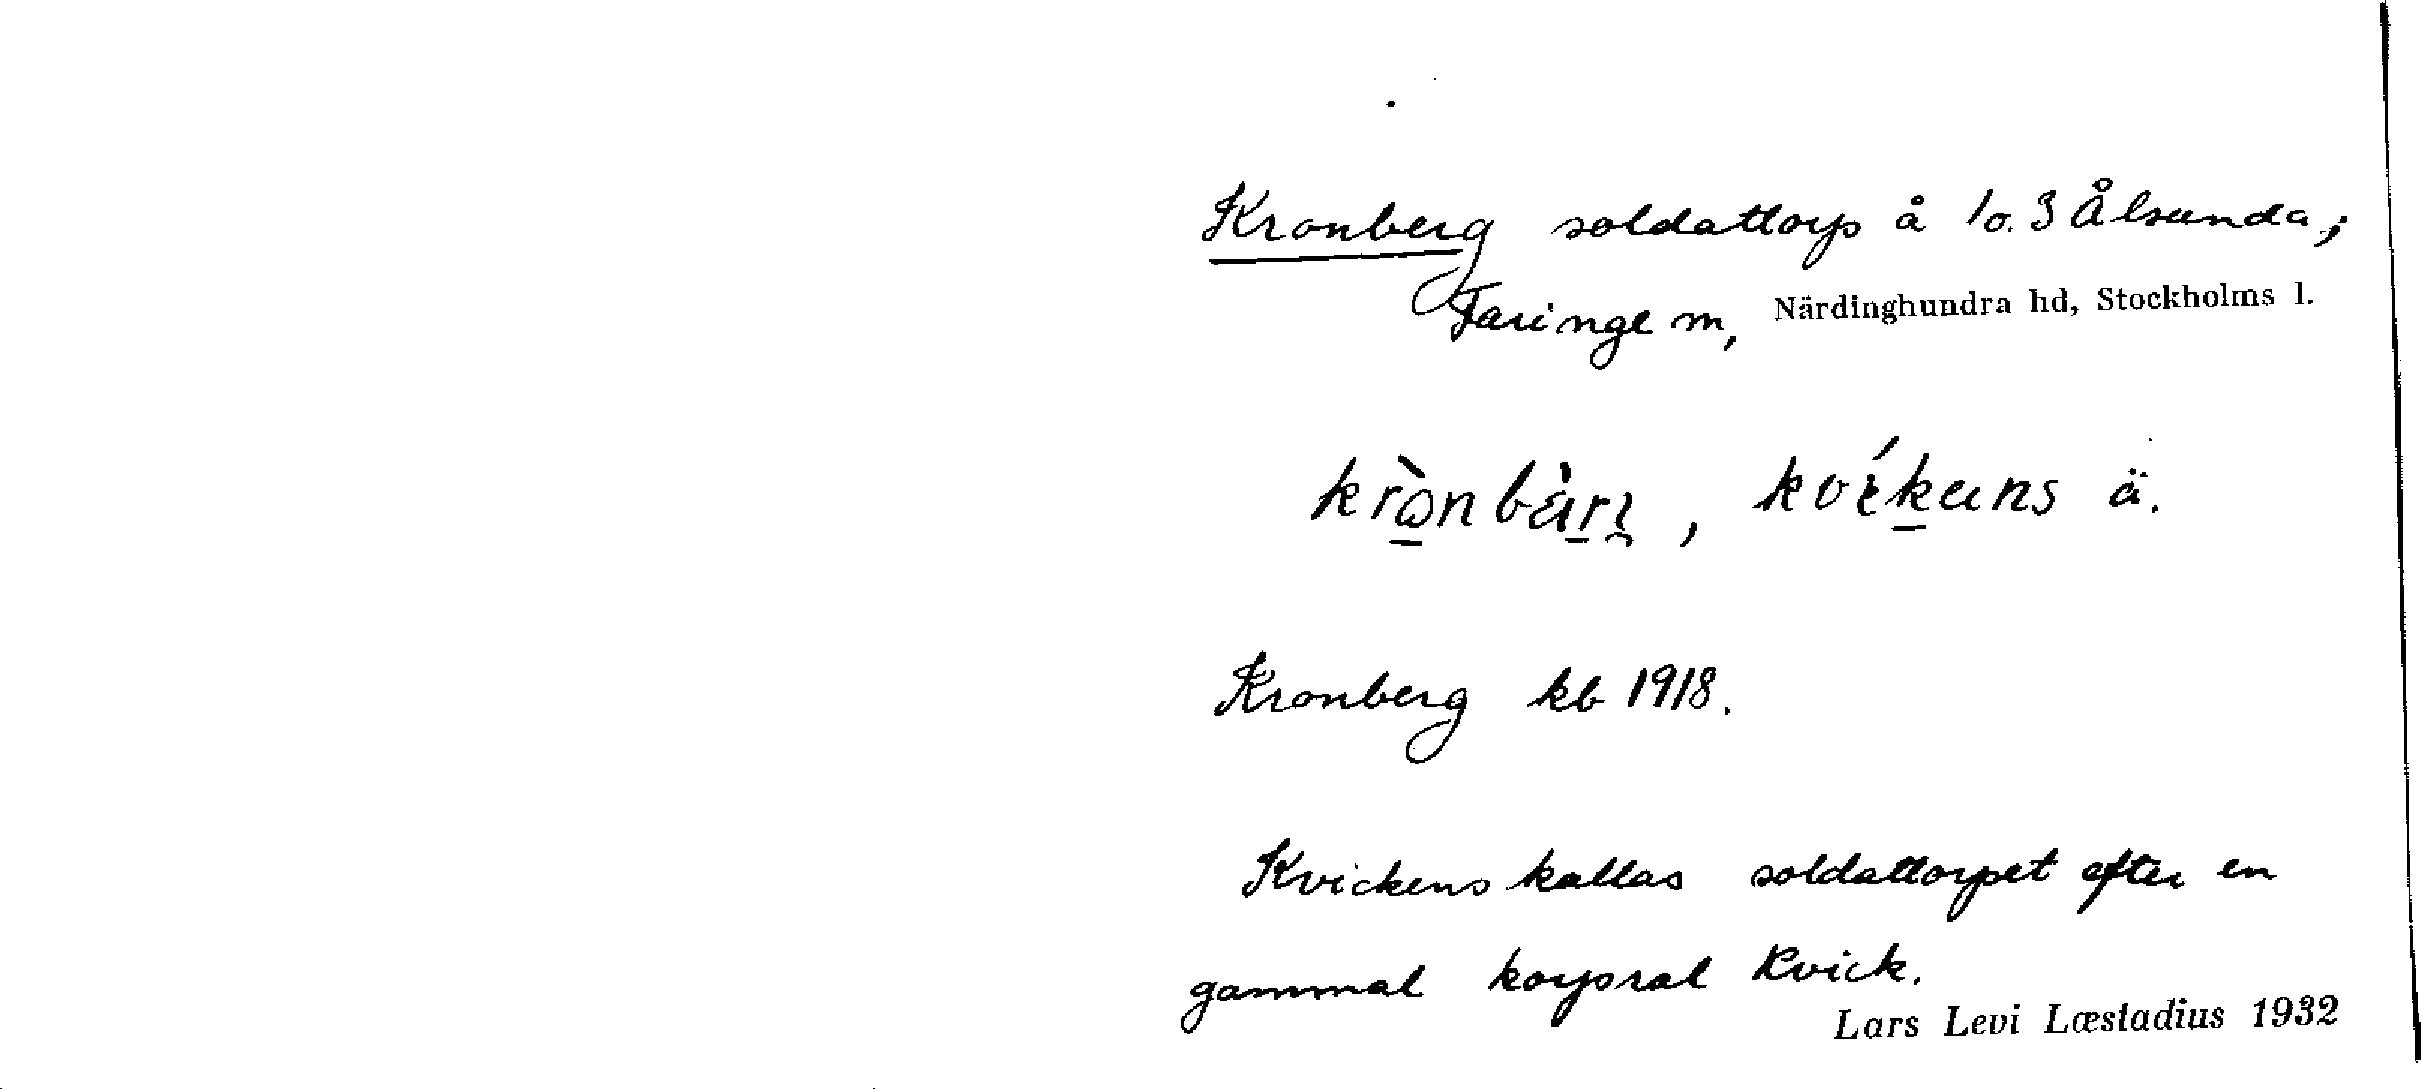 Kronberg soldattorp å 1o. 3 Ålsunda,
Faringe m, Närdinghundra hd, Stockholms l.
Kronberg kb 1918.
Kvickens kallas soldattorpet efter en
gammal korpral Kvick.
Lars Levi Læstadius 1932